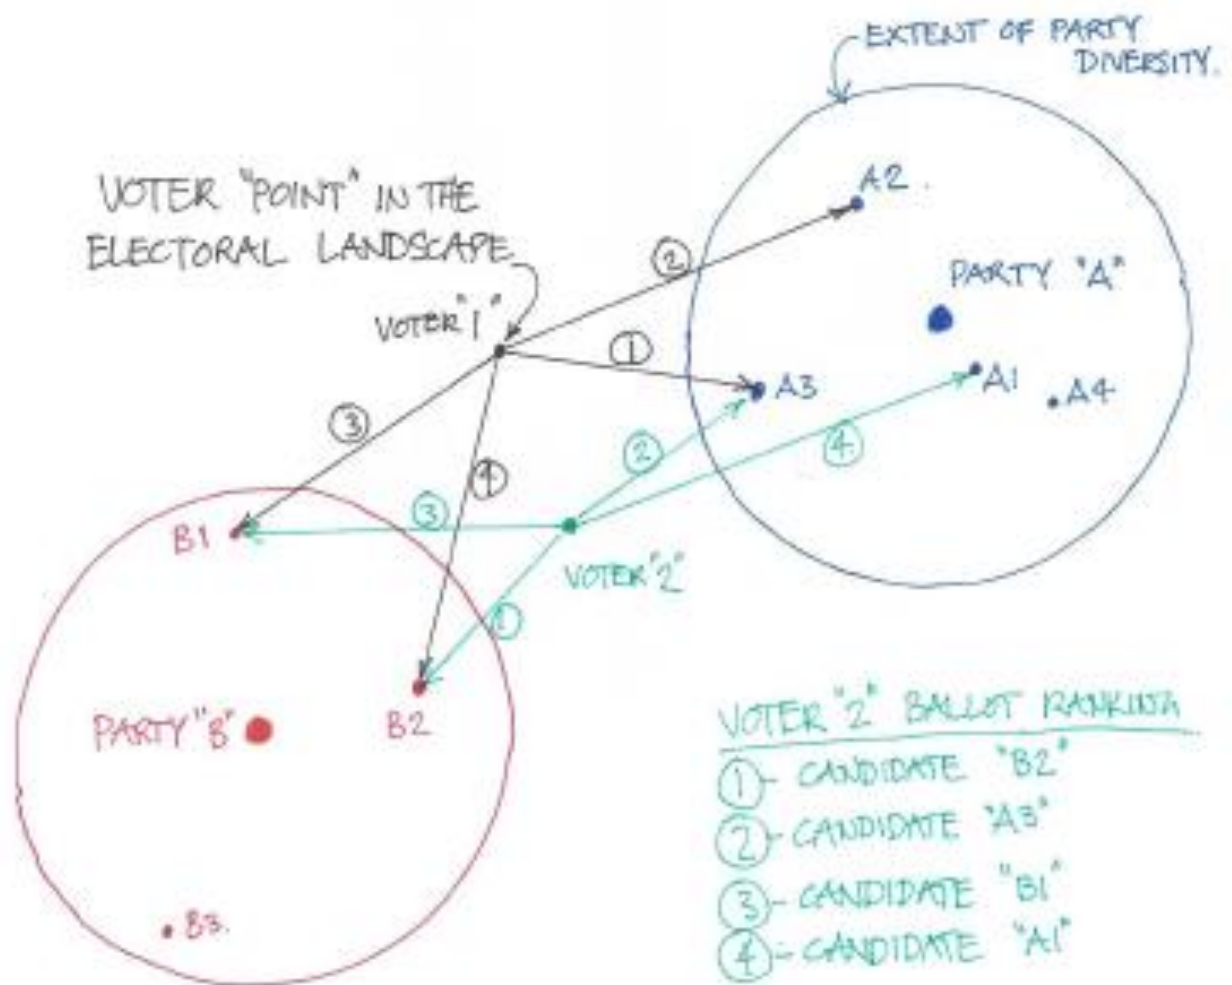 EXTENT OF PARTY
DIVERSITY.
VOTER "POINT" IN THE
ELECTORAL LANDSCAPE
VOTER "1"
A2.
PARTY "A"
A1
A4
A3
②
①
③
④
②
④
③
①
B1
VOTER "2"
B2
PARTY "B"
B3.
VOTER "2" BALLOT RANKING
① - CANDIDATE "B2"
② - CANDIDATE "A3"
③ - CANDIDATE "B1"
④ - CANDIDATE "A1"